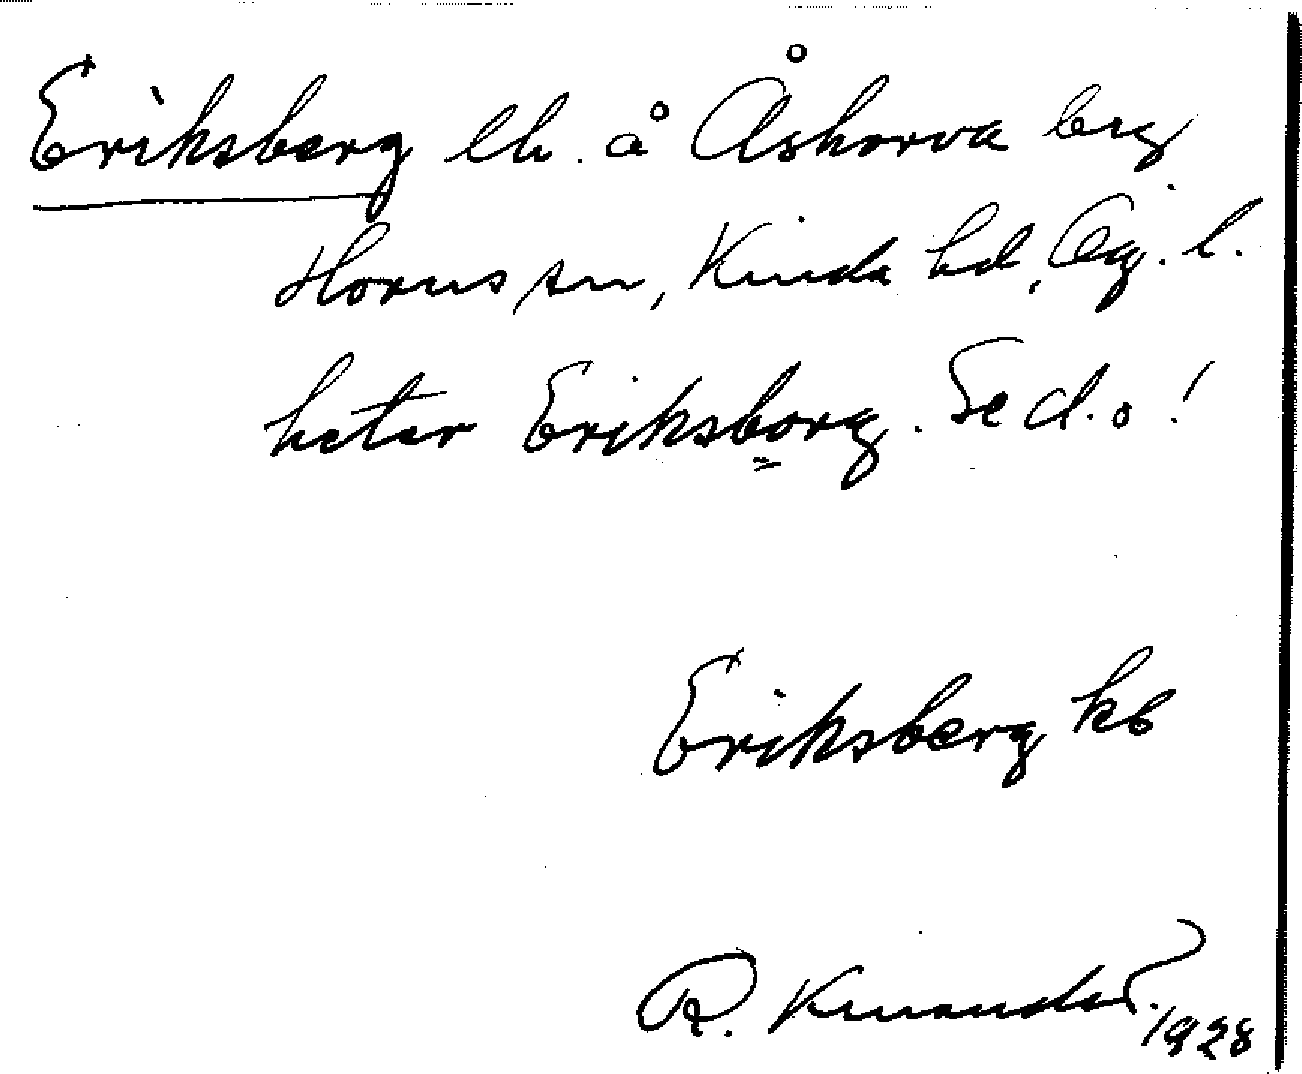 Eriksberg lh. å Åskorva big
Horns sn, Kinda hd, Ög. l.
heter Eriksborg. Se d.o!
Eriksberg kb
R. Kinander. 1928